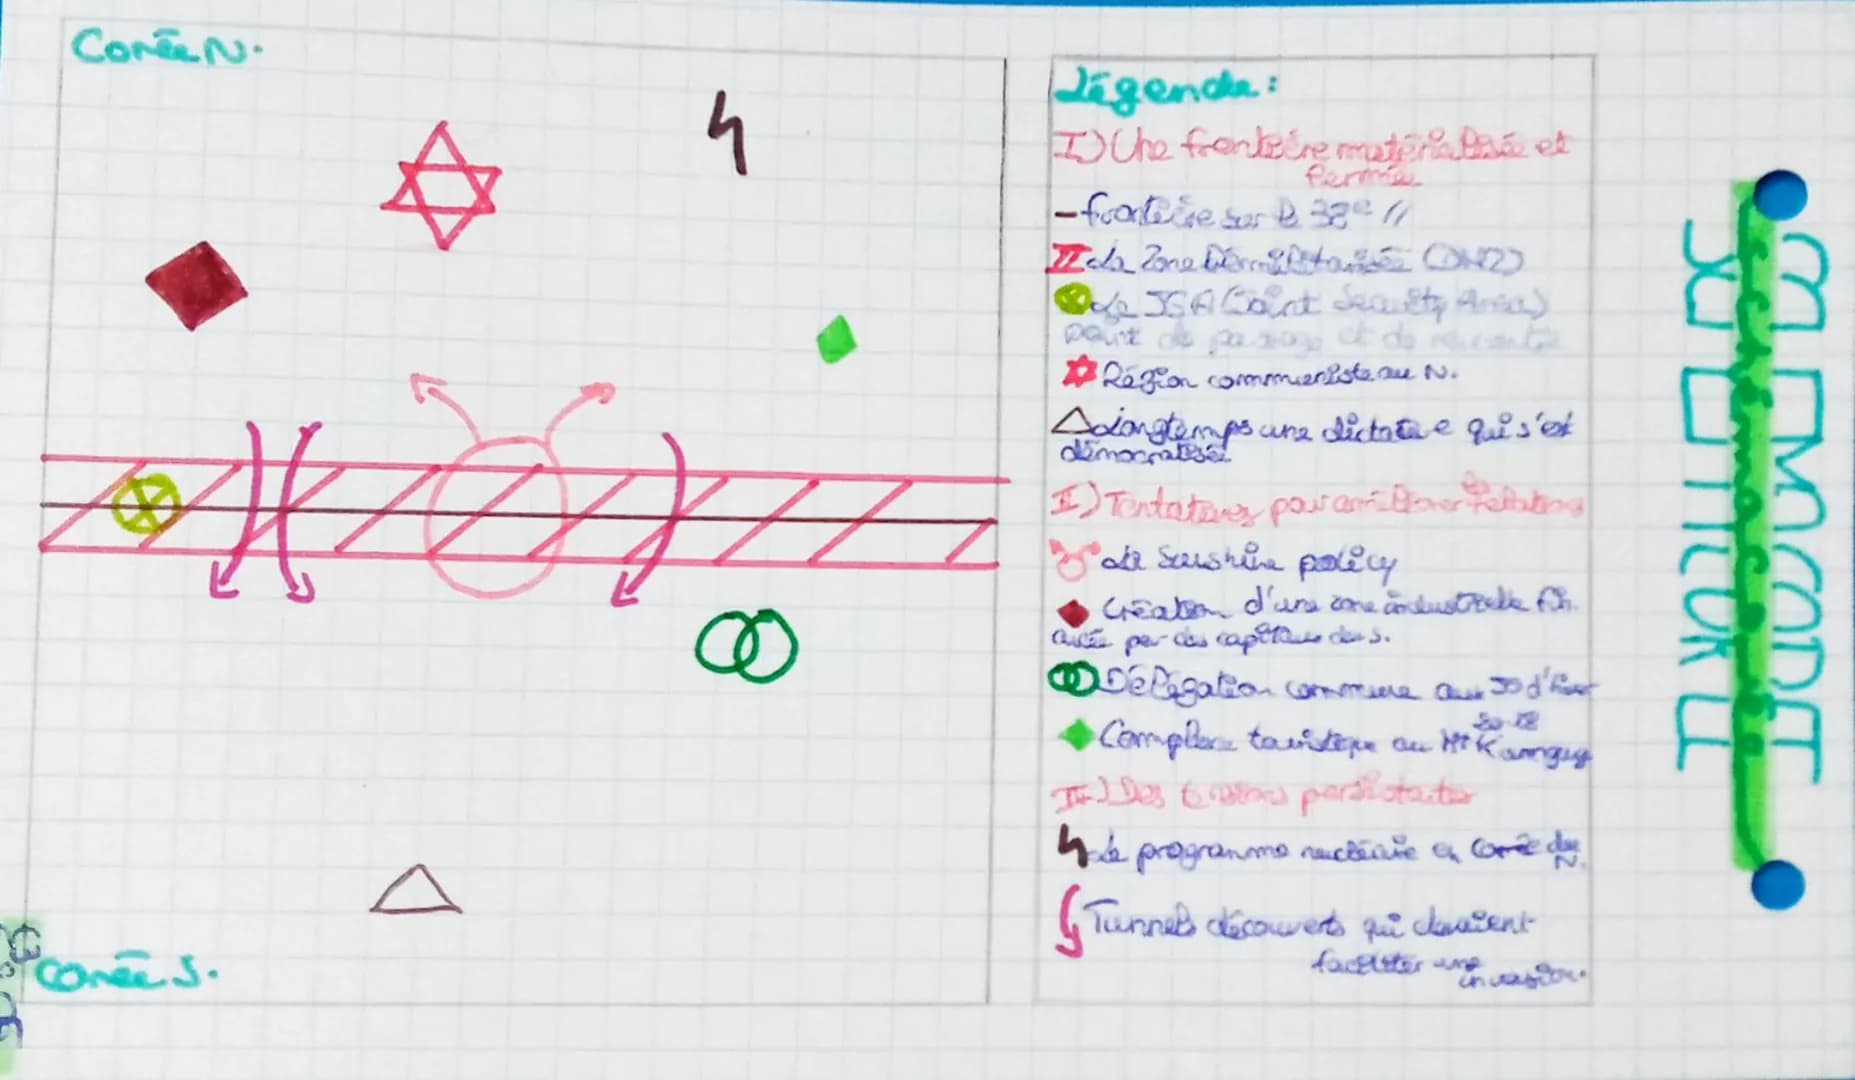 Corée N.
Corée S.
Légende:
I) Une frontière matérialisée et
fermée
frontière sur le 38e //
La Zone Démilitarisée (DMZ)
La JSA (Joint Security Area)
point de passage et de rencontre
Région communiste au N.
Longtemps une dictature qui s'est
démocratisée
II) Tentatives pour améliorer les relations
La Sunshine policy
Création d'une zone industrielle fin
ancée par des capitaux du S.
Délégation commune aux JO d'hiver
2018
Complexe touristique au Mt Kumgang
III) Des tensions persistantes
Le programme nucléaire en Corée du
N.
Tunnels découverts qui devaient
faciliter une
invasion.